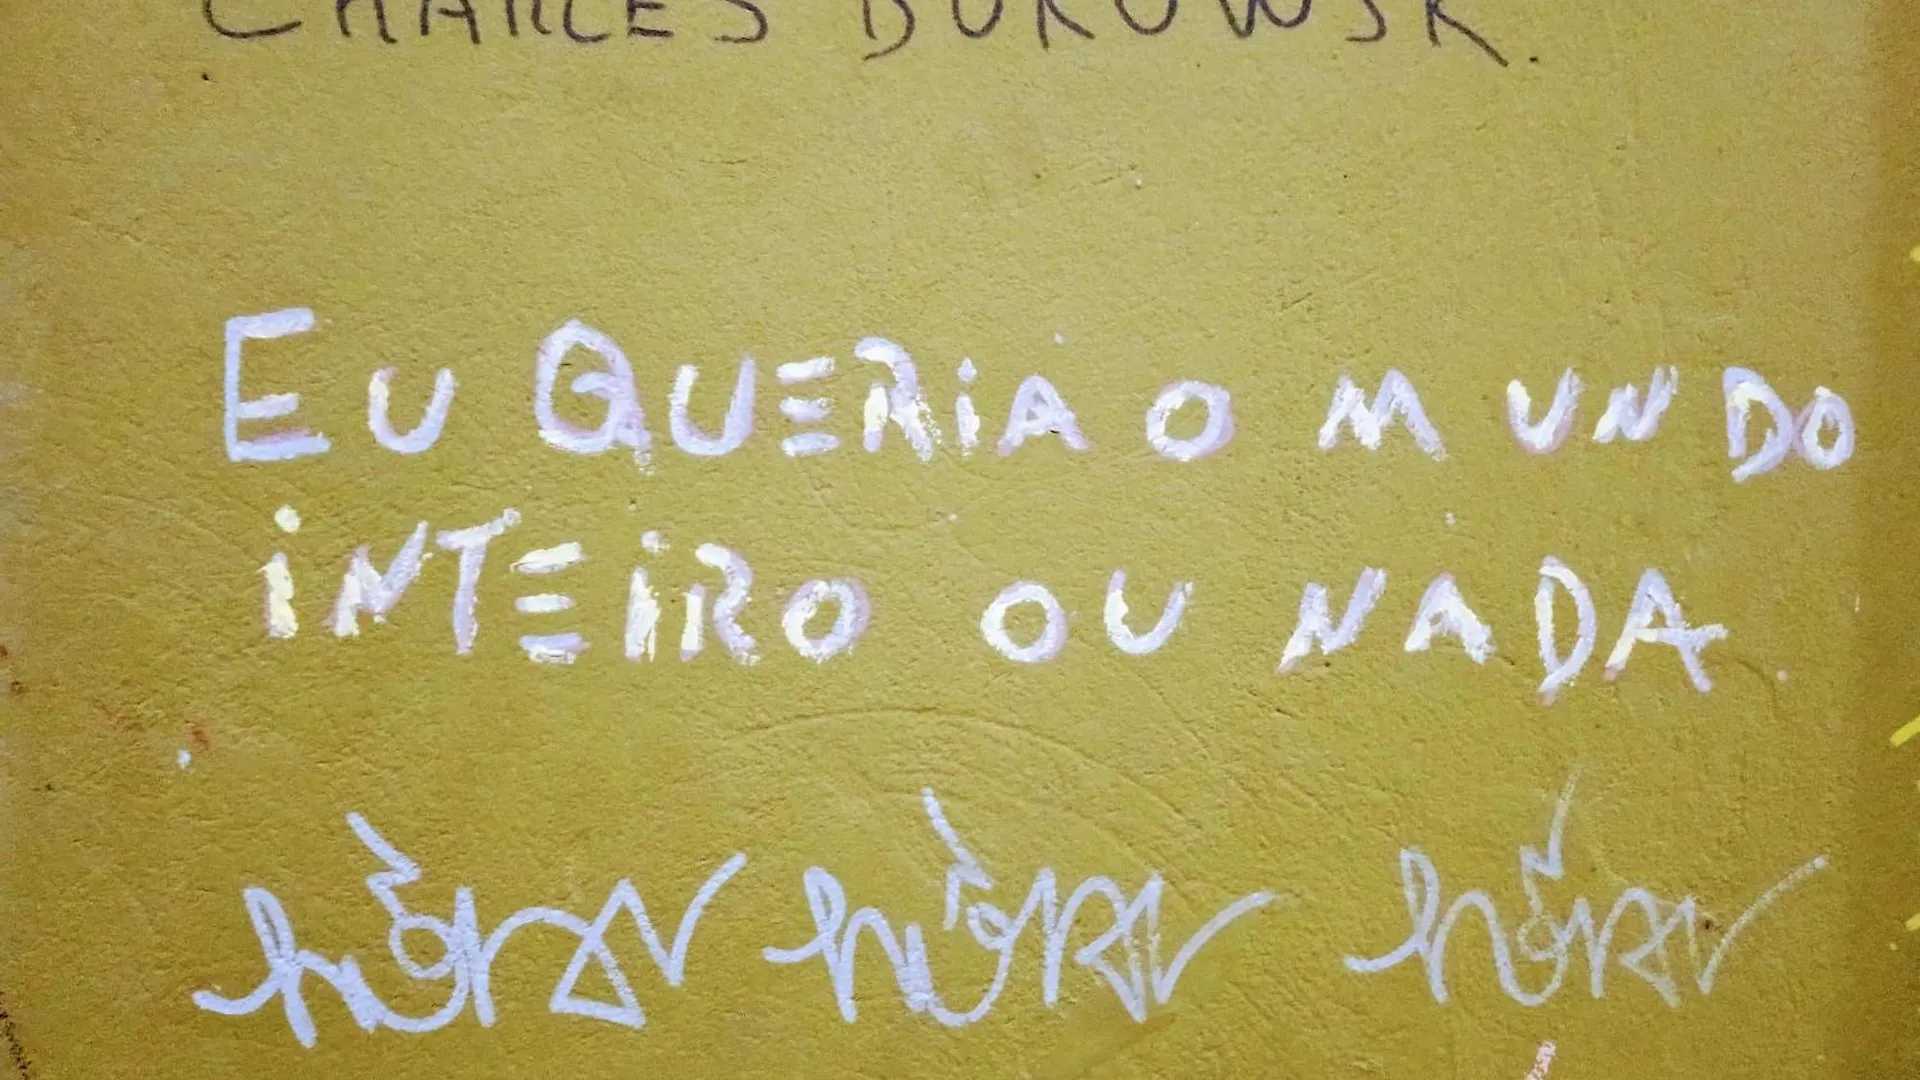 CHARLES BUKOWSK.
EU QUERIA O MUNDO
INTEIRO OU NADA